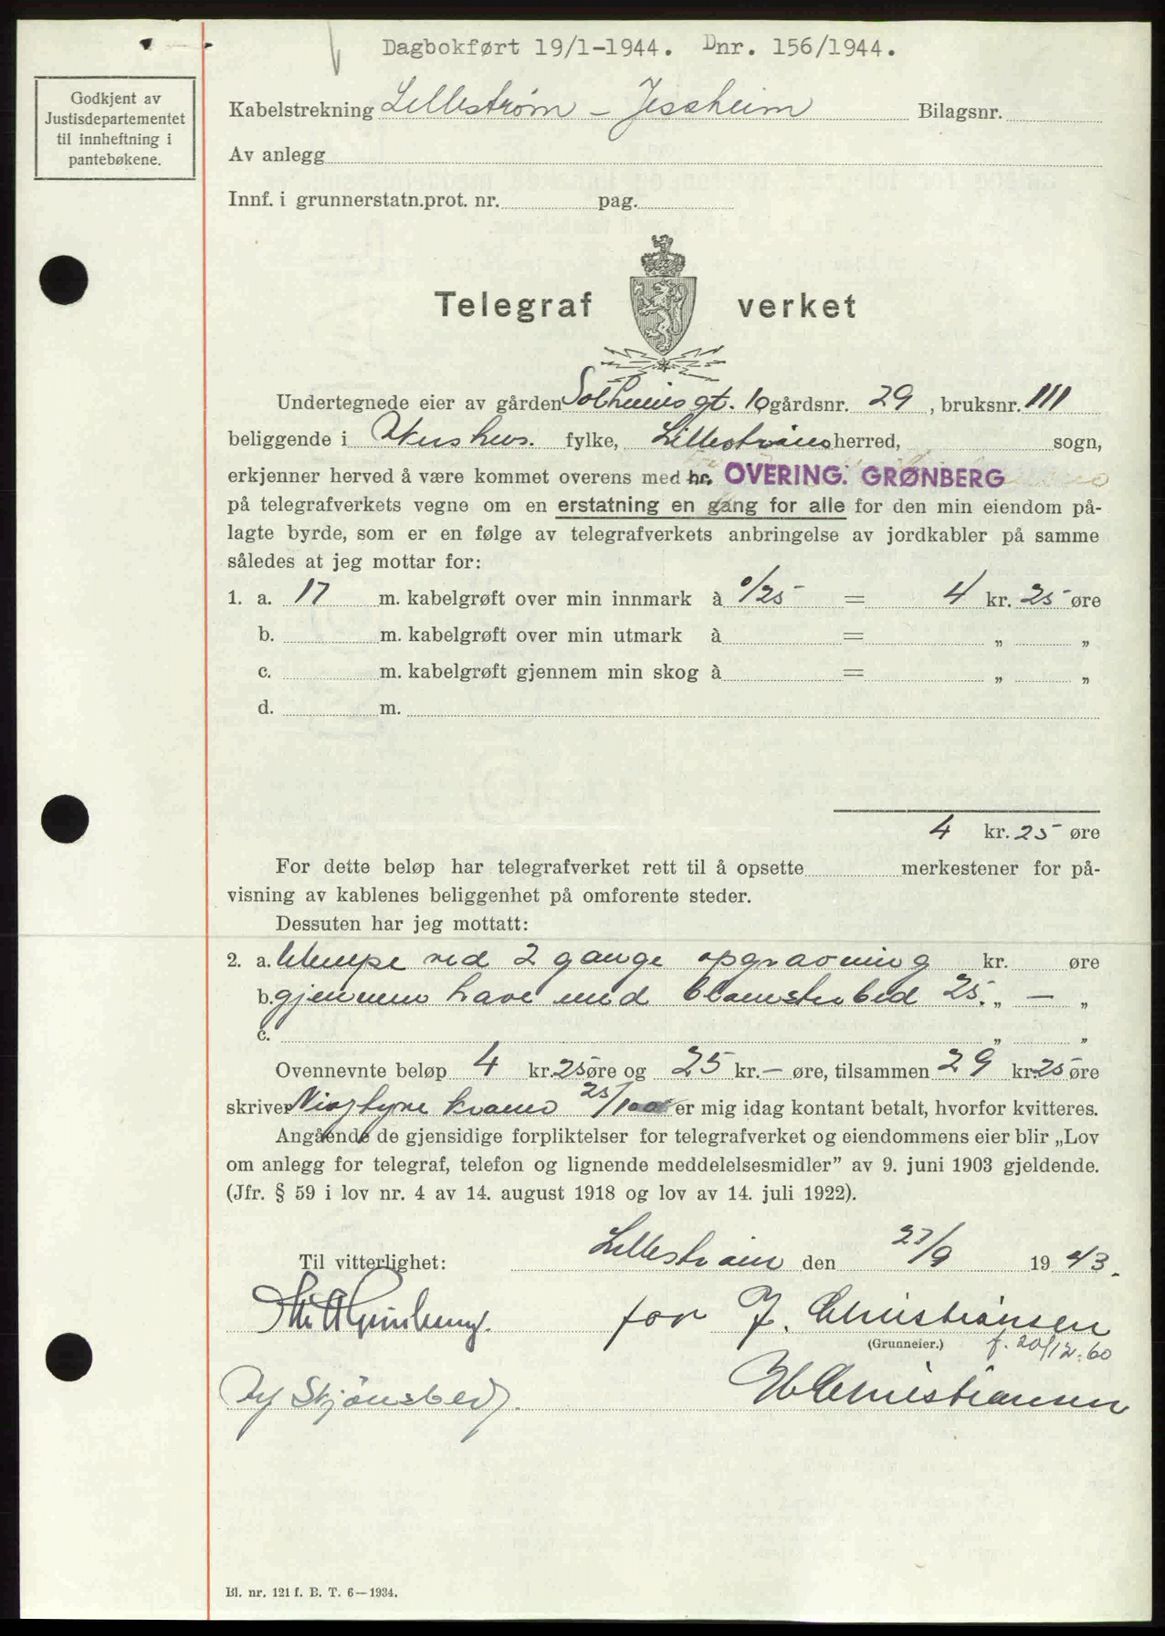 Dagbokført 19/1-1944. Dnr. 156/1944.
Godkjent av
Justisdepartementet
til innheftning i
pantebøkene.
Kabelstrekning Lillestrøm - Jessheim Bilagsnr.
Av anlegg
Innf. i grunnerstatn.prot. nr. pag.
Telegrafverket
Undertegnede eier av gården Solheims gt. 10 gårdsnr. 29, bruksnr. 111
beliggende i Akershus. fylke, Lillestrøm herred, sogn,
erkjenner herved å være kommet overens med hr. OVERING. GRØNBERG
på telegrafverkets vegne om en erstatning en gang for alle for den min eiendom på-
lagte byrde, som er en følge av telegrafverkets anbringelse av jordkabler på samme
således at jeg mottar for:
1. a. 17 m. kabelgrøft over min innmark à 0/25 = 4 kr. 25 øre
b. m. kabelgrøft over min utmark à = „ „
c. m. kabelgrøft gjennem min skog à = „ „
d. m.
4 kr. 25 øre
For dette beløp har telegrafverket rett til å opsette merkestener for på-
visning av kablenes beliggenhet på omforente steder.
Dessuten har jeg mottatt:
2. a. Ulempe ved 2 gange opgravning kr. øre
b. gjennem have med blomsterbed 25. „ — „
c. „ „
Ovennevnte beløp 4 kr. 25 øre og 25 kr. — øre, tilsammen 29 kr. 25 øre
skriver Niogtyve kroner 25/100 er mig idag kontant betalt, hvorfor kvitteres.
Angående de gjensidige forpliktelser for telegrafverket og eiendommens eier blir „Lov
om anlegg for telegraf, telefon og lignende meddelelsesmidler” av 9. juni 1903 gjeldende.
(Jfr. § 59 i lov nr. 4 av 14. august 1918 og lov av 14. juli 1922).
Lillestrøm den 27/9 1943.
Til vitterlighet:
for J. Christiansen
(Grunneier.) f. 20/12.60
Skjønsberg. H Christiansen
Bl. nr. 121 f. B. T. 6—1934.